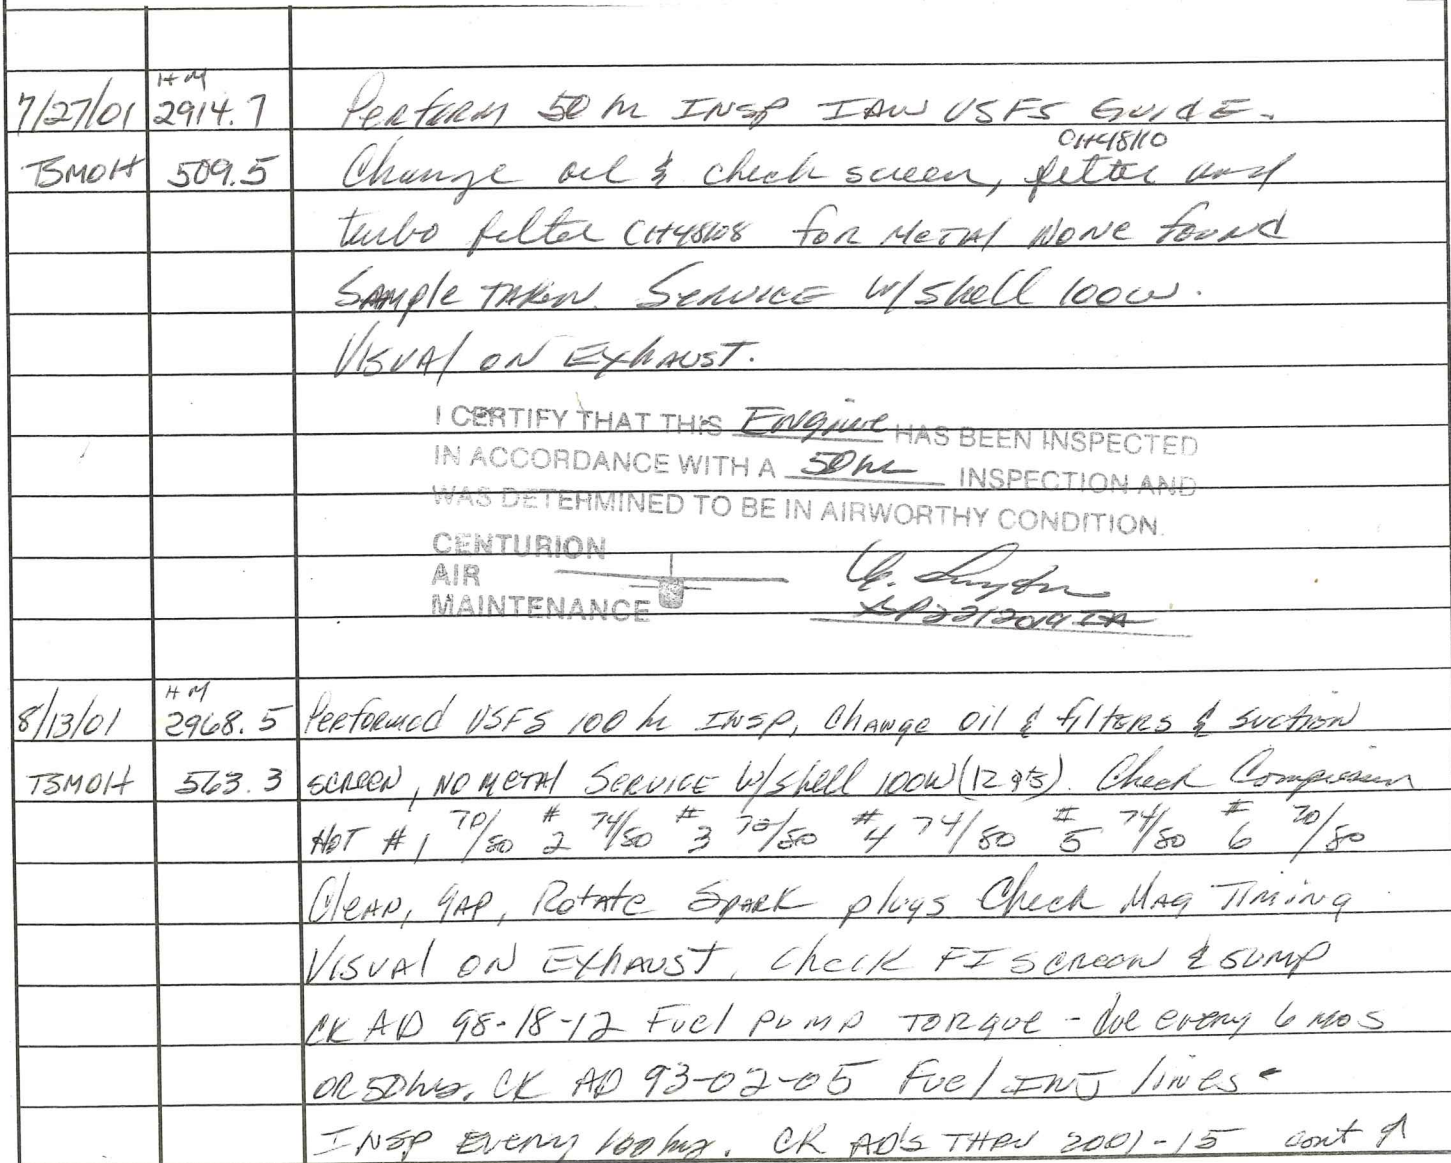 HM
7/27/01 2914.7 Perform 50 hr INSP IAW USFS GUIDE.
CH48110
TSMOH 509.5 Change oil & check screen, filter and
turbo filter CH48108 for metal NONE found
Sample TAKEN. SERVICE W/Shell 100W.
Visual on Exhaust.
I CERTIFY THAT THIS Engine HAS BEEN INSPECTED
IN ACCORDANCE WITH A 50 hr INSPECTION AND
WAS DETERMINED TO BE IN AIRWORTHY CONDITION.
CENTURION
AIR
MAINTENANCE
HM
8/13/01 2968.5 Performed USFS 100 hr INSP, Change oil & filters & suction
TSMOH 563.3 SCREEN, NO METAL SERVICE W/Shell 100W Check Compression
HOT #1 70/80 #2 74/80 #3 /80 #4 74/80 #5 74/80 #6 70/80
Clean, gap, Rotate Spark plugs Check Mag Timing
Visual on Exhaust, Check FI SCREEN & SUMP
CK AD 98-18-12 Fuel PUMP TORQUE - due every 6 MOS
OR 50 hrs. CK AD 93-02-05 Fuel INJ lines -
INSP Every 100 hrs. CK AD'S THRU 2001-15 cont